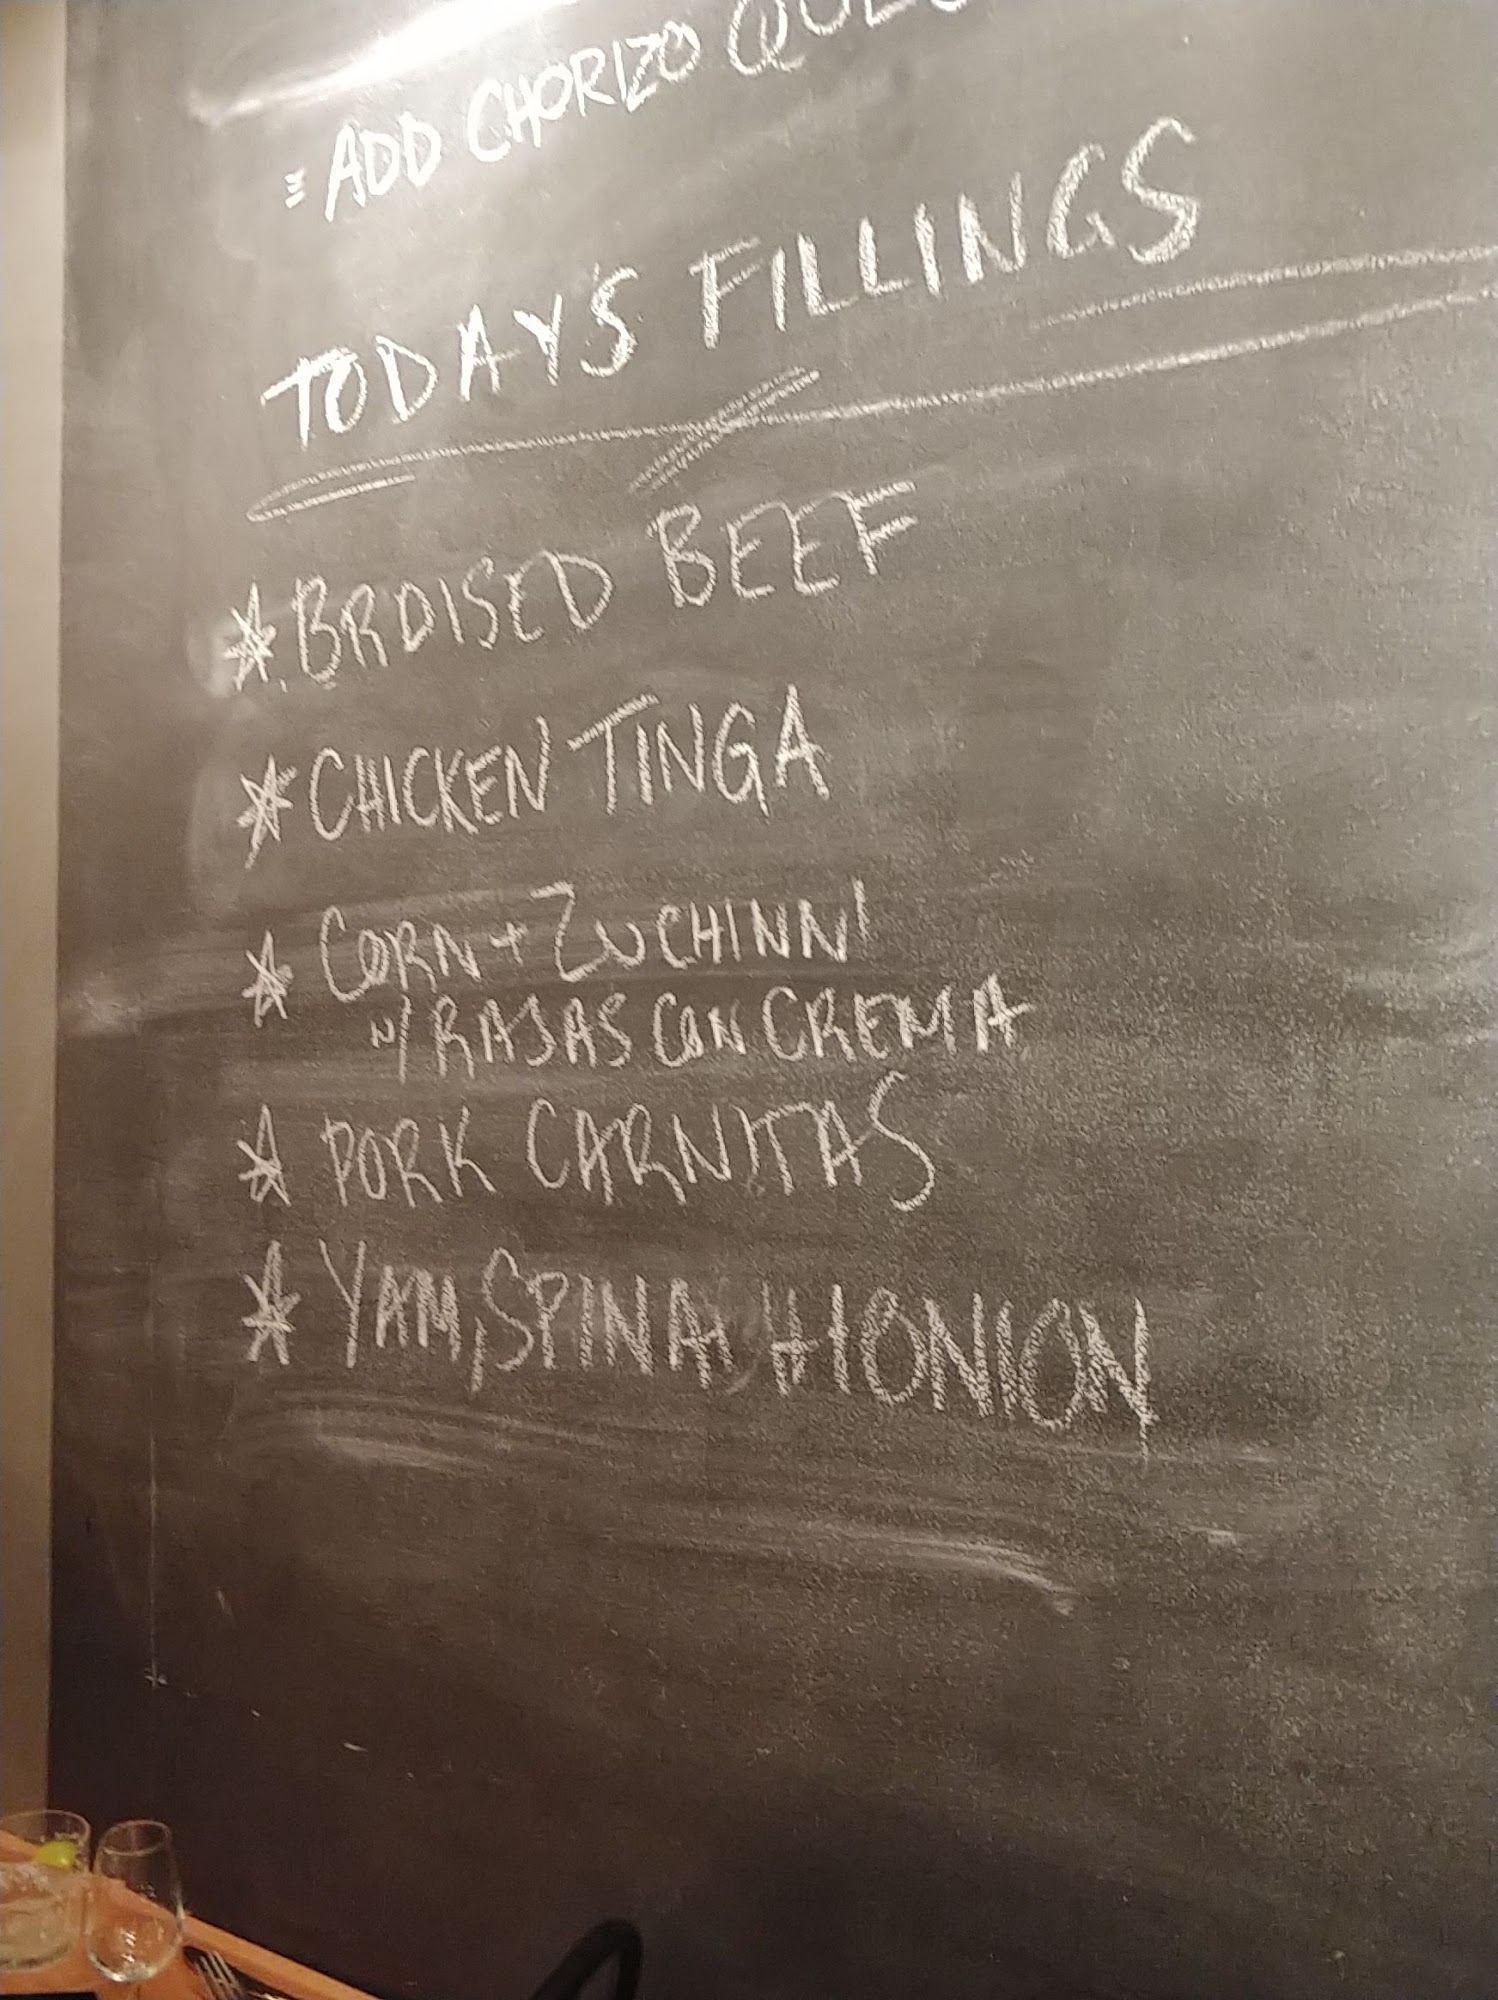 = ADD CHORIZO
TODAY'S FILLINGS
* BRAISED BEEF
* CHICKEN TINGA
* CORN + ZUCHINNI
W/ RAJAS CON CREMA
* PORK CARNITAS
* YAM, SPINACH + ONION